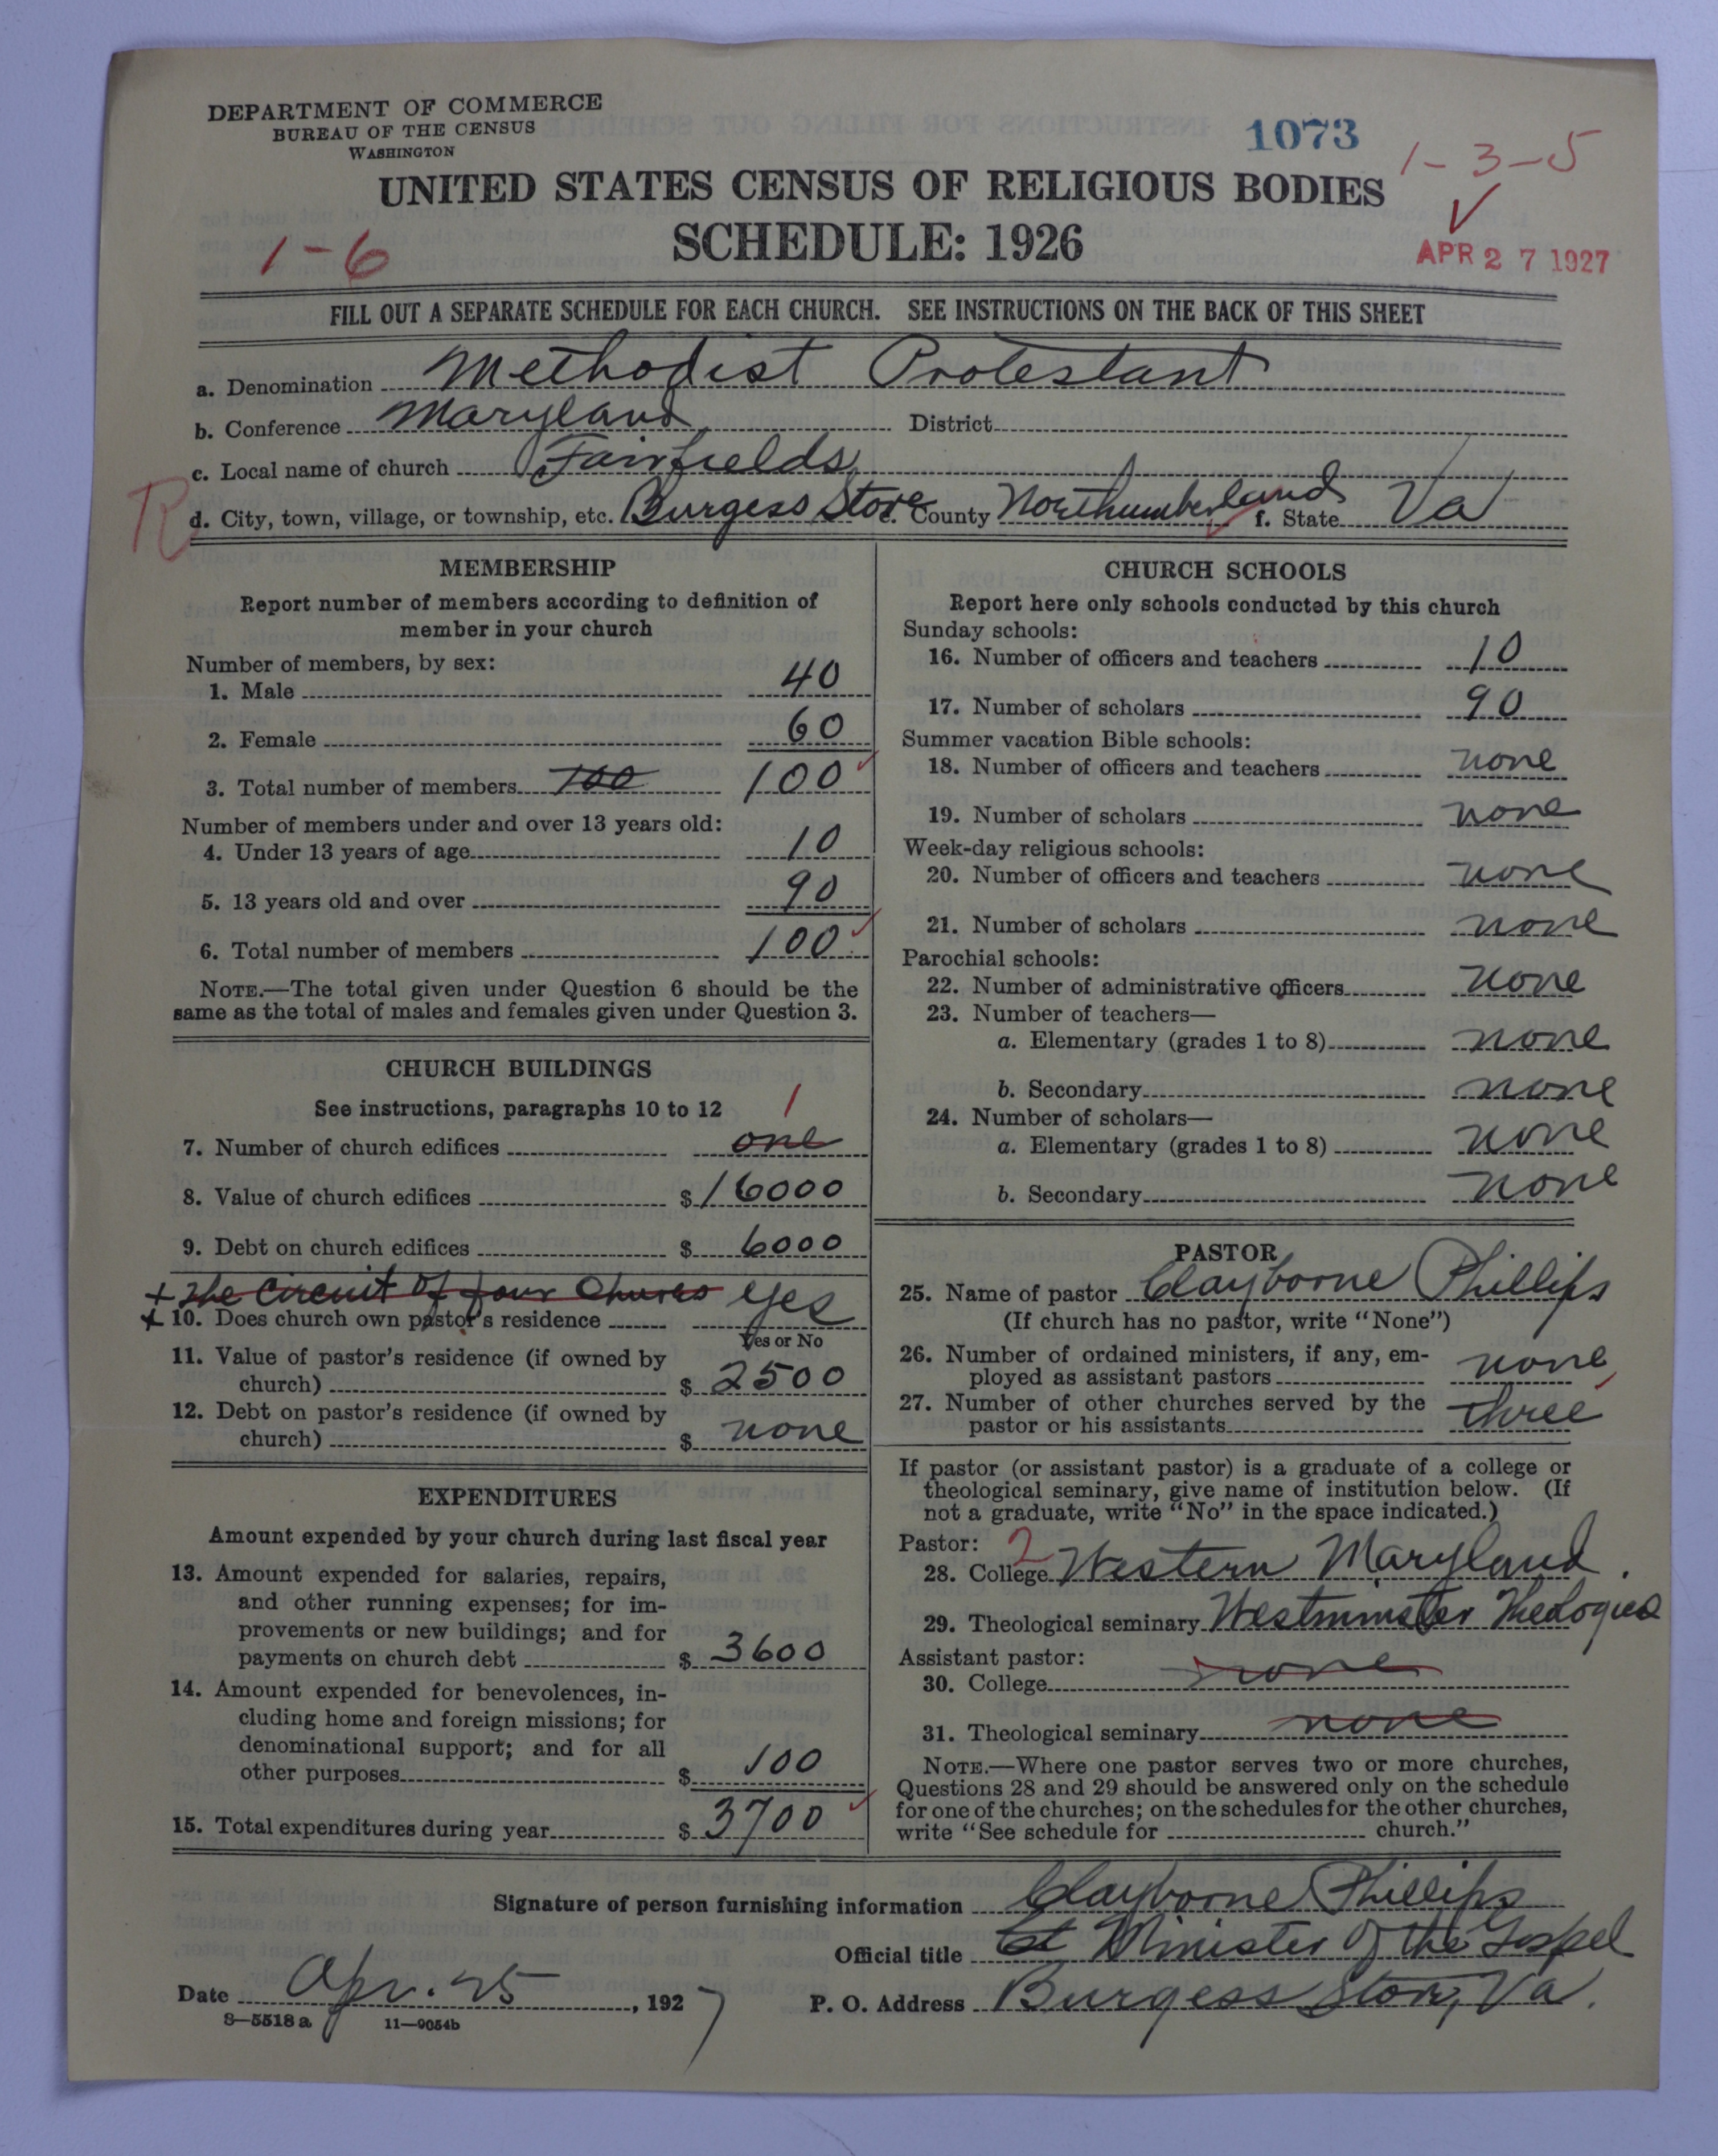 DEPARTMENT OF COMMERCE
BUREAU OF THE CENSUS
WASHINGTON
1073
1-3-5
UNITED STATES CENSUS OF RELIGIOUS BODIES
SCHEDULE: 1926
1-6
APR 27 1927
FILL OUT A SEPARATE SCHEDULE FOR EACH CHURCH. SEE INSTRUCTIONS ON THE BACK OF THIS SHEET
a. Denomination Methodist Protestant
b. Conference Maryland District
c. Local name of church Fairfields
R
d. City, town, village, or township, etc. Burgess Store e. County Northumberland f. State Va
MEMBERSHIP
Report number of members according to definition of
member in your church
Number of members, by sex:
1. Male 40
2. Female 60
3. Total number of members 100 100
Number of members under and over 13 years old:
4. Under 13 years of age 10
5. 13 years old and over 90
6. Total number of members 100
NOTE.—The total given under Question 6 should be the
same as the total of males and females given under Question 3.
CHURCH BUILDINGS
See instructions, paragraphs 10 to 12 1
7. Number of church edifices one
8. Value of church edifices $ 16000
9. Debt on church edifices $ 6000
+ The Circuit of four Chures yes
+ 10. Does church own pastor's residence
Yes or No
11. Value of pastor's residence (if owned by
church) $ 2500
12. Debt on pastor's residence (if owned by
church) $ none
EXPENDITURES
Amount expended by your church during last fiscal year
13. Amount expended for salaries, repairs,
and other running expenses; for im-
provements or new buildings; and for
payments on church debt $ 3600
14. Amount expended for benevolences, in-
cluding home and foreign missions; for
denominational support; and for all
other purposes $ 100
15. Total expenditures during year $ 3700
CHURCH SCHOOLS
Report here only schools conducted by this church
Sunday schools:
16. Number of officers and teachers 10
17. Number of scholars 90
Summer vacation Bible schools:
18. Number of officers and teachers none
19. Number of scholars none
Week-day religious schools:
20. Number of officers and teachers none
21. Number of scholars none
Parochial schools:
22. Number of administrative officers none
23. Number of teachers—
a. Elementary (grades 1 to 8) none
b. Secondary none
24. Number of scholars—
a. Elementary (grades 1 to 8) none
b. Secondary none
PASTOR
25. Name of pastor Clayborne Phillips
(If church has no pastor, write "None")
26. Number of ordained ministers, if any, em-
ployed as assistant pastors none
27. Number of other churches served by the
pastor or his assistants three
If pastor (or assistant pastor) is a graduate of a college or
theological seminary, give name of institution below. (If
not a graduate, write "No" in the space indicated.)
Pastor: 2
28. College Western Maryland.
29. Theological seminary Westminster Theological
Assistant pastor:
30. College none
31. Theological seminary none
NOTE.—Where one pastor serves two or more churches,
Questions 28 and 29 should be answered only on the schedule
for one of the churches; on the schedules for the other churches,
write "See schedule for church."
Signature of person furnishing information Clayborne Phillips
Official title Minister of the Gospel
Date Apr. 25, 1927
P. O. Address Burgess Store, Va.
8—5518 a 11—9054b